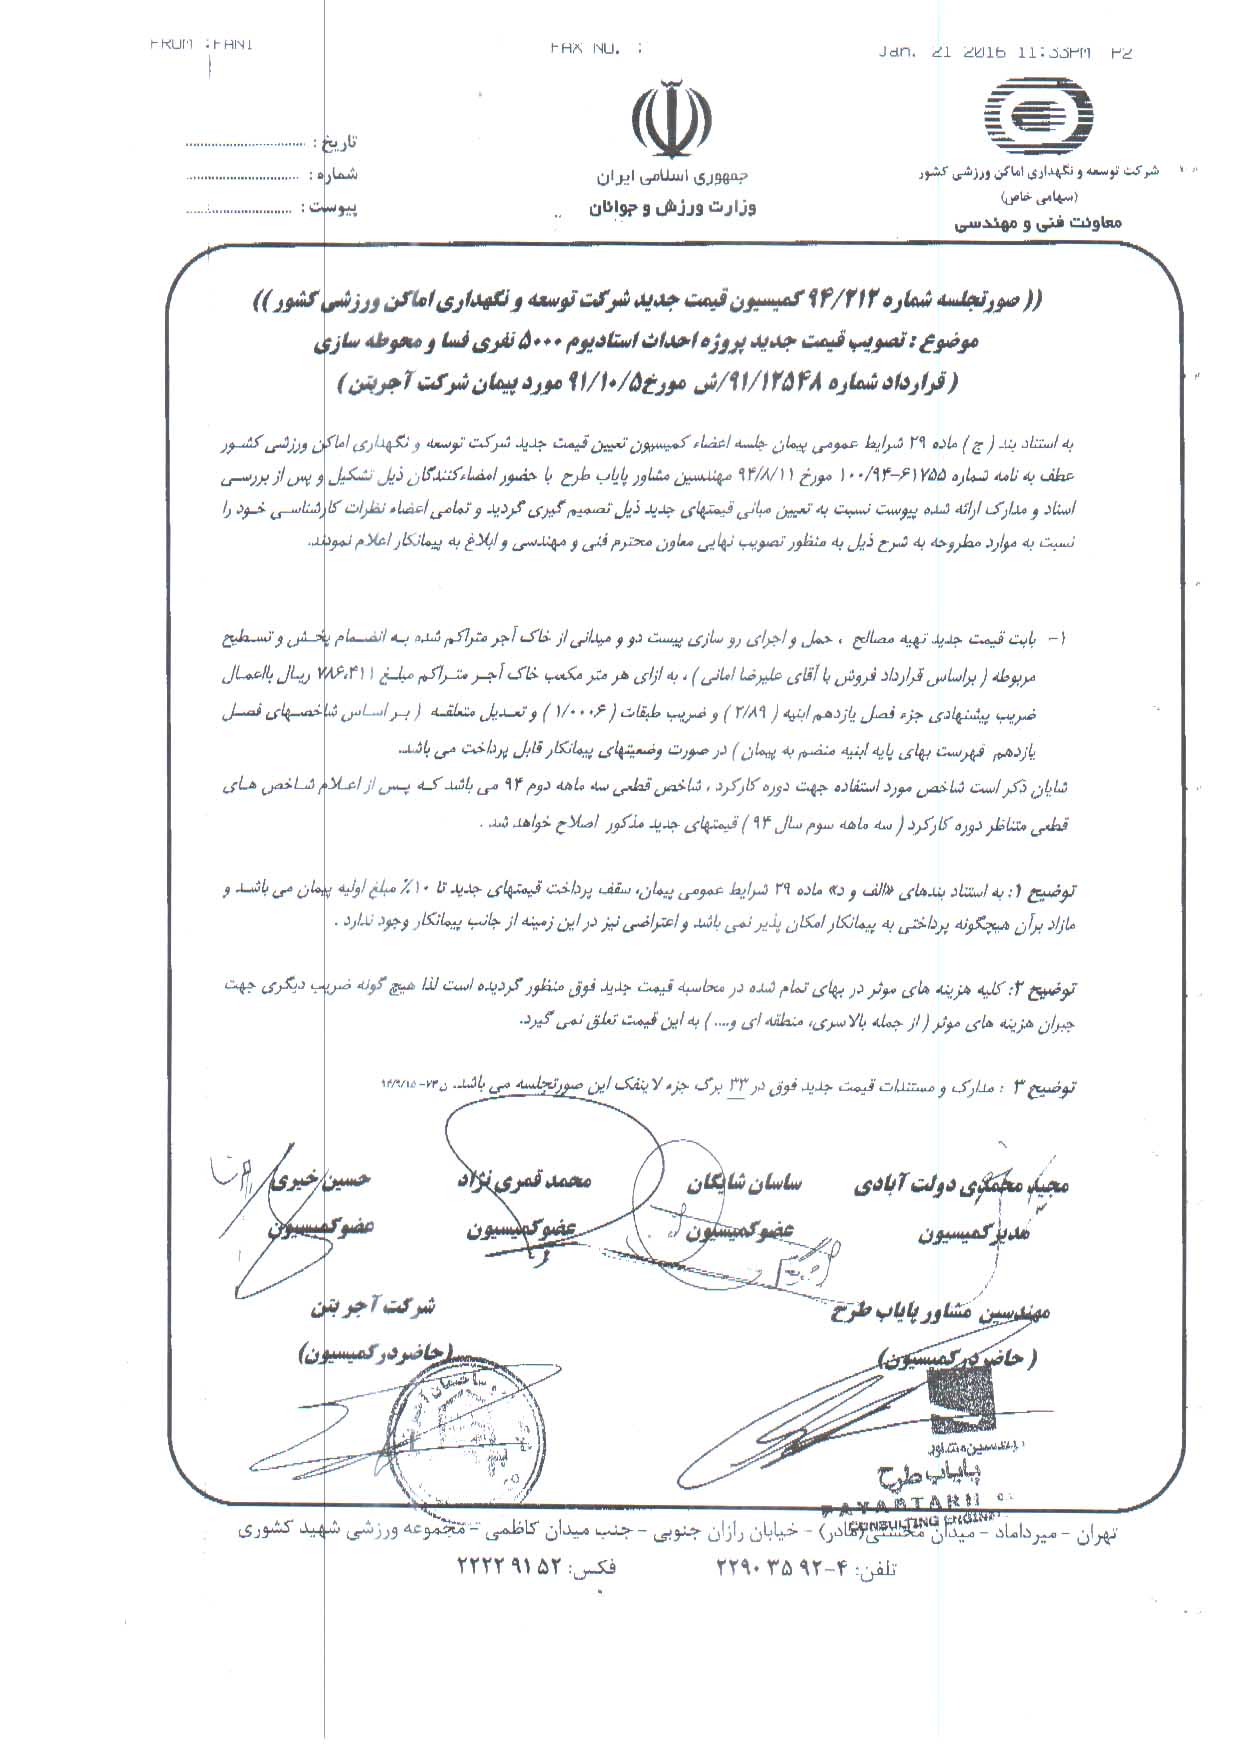 FROM : FANI FAX NO. : Jan. 21 2016 11:33PM P2
شرکت توسعه و نگهداری اماکن ورزشی کشور
(سهامی خاص)
معاونت فنی و مهندسی
جمهوری اسلامی ایران
وزارت ورزش و جوانان
تاریخ :
شماره :
پیوست :
(( صورتجلسه شماره ۹۴/۲۱۲ کمیسیون قیمت جدید شرکت توسعه و نگهداری اماکن ورزشی کشور ))
موضوع : تصویب قیمت جدید پروژه احداث استادیوم ۵۰۰۰ نفری فسا و محوطه سازی
( قرارداد شماره ۹۱/۱۲۵۴۸/ش مورخ ۹۱/۱۰/۵ مورد پیمان شرکت آجربتن )
به استناد بند ( ج ) ماده ۲۹ شرایط عمومی پیمان جلسه اعضاء کمیسیون تعیین قیمت جدید شرکت توسعه و نگهداری اماکن ورزشی کشور
عطف به نامه شماره ۶۱۷۵۵-۱۰۰/۹۴ مورخ ۹۴/۸/۱۱ مهندسین مشاور پایاب طرح با حضور امضاءکنندگان ذیل تشکیل و پس از بررسی
اسناد و مدارک ارائه شده پیوست نسبت به تعیین مبانی قیمتهای جدید ذیل تصمیم گیری گردید و تمامی اعضاء نظرات کارشناسی خود را
نسبت به موارد مطروحه به شرح ذیل به منظور تصویب نهایی معاون محترم فنی و مهندسی و ابلاغ به پیمانکار اعلام نمودند.
۱- بابت قیمت جدید تهیه مصالح ، حمل و اجرای رو سازی پیست دو و میدانی از خاک آجر متراکم شده به انضمام پخش و تسطیح
مربوطه ( براساس قرارداد فروش با آقای علیرضا امانی ) ، به ازای هر متر مکعب خاک آجر متراکم مبلغ ۷۸۶,۴۱۱ ریال بااعمال
ضریب پیشنهادی جزء فصل یازدهم ابنیه ( ۲/۸۹ ) و ضریب طبقات ( ۱/۰۰۰۶ ) و تعدیل متعلقه ( بر اساس شاخصهای فصل
یازدهم فهرست بهای پایه ابنیه منضم به پیمان ) در صورت وضعیتهای پیمانکار قابل پرداخت می باشد.
شایان ذکر است شاخص مورد استفاده جهت دوره کارکرد ، شاخص قطعی سه ماهه دوم ۹۴ می باشد که پس از اعلام شاخص های
قطعی متناظر دوره کارکرد ( سه ماهه سوم سال ۹۴ ) قیمتهای جدید مذکور اصلاح خواهد شد .
توضیح ۱: به استناد بندهای «الف و د» ماده ۲۹ شرایط عمومی پیمان، سقف پرداخت قیمتهای جدید تا ۱۰٪ مبلغ اولیه پیمان می باشد و
مازاد برآن هیچگونه پرداختی به پیمانکار امکان پذیر نمی باشد و اعتراضی نیز در این زمینه از جانب پیمانکار وجود ندارد .
توضیح ۲: کلیه هزینه های موثر در بهای تمام شده در محاسبه قیمت جدید فوق منظور گردیده است لذا هیچ گونه ضریب دیگری جهت
جبران هزینه های موثر ( از جمله بالاسری، منطقه ای و.... ) به این قیمت تعلق نمی گیرد.
توضیح ۳ : مدارک و مستندات قیمت جدید فوق در ۳۳ برگ جزء لاینفک این صورتجلسه می باشد. ن۷۳-۹۴/۹/۱۵
مجید محمدی دولت آبادی ساسان شایگان محمد قمری نژاد حسین خیری
مدیر کمیسیون عضو کمیسیون عضو کمیسیون عضو کمیسیون
مهندسین مشاور پایاب طرح شرکت آجر بتن
( حاضر در کمیسیون) (حاضر در کمیسیون)
مهندسین مشاور
پایاب طرح
PAYAB TARH
CONSULTING ENGIN
تهران - میرداماد - میدان محسنی(مادر) - خیابان رازان جنوبی - جنب میدان کاظمی - مجموعه ورزشی شهید کشوری
تلفن: ۴-۲۲۹۰۳۵۹۲ فکس: ۲۲۲۲۹۱۵۲